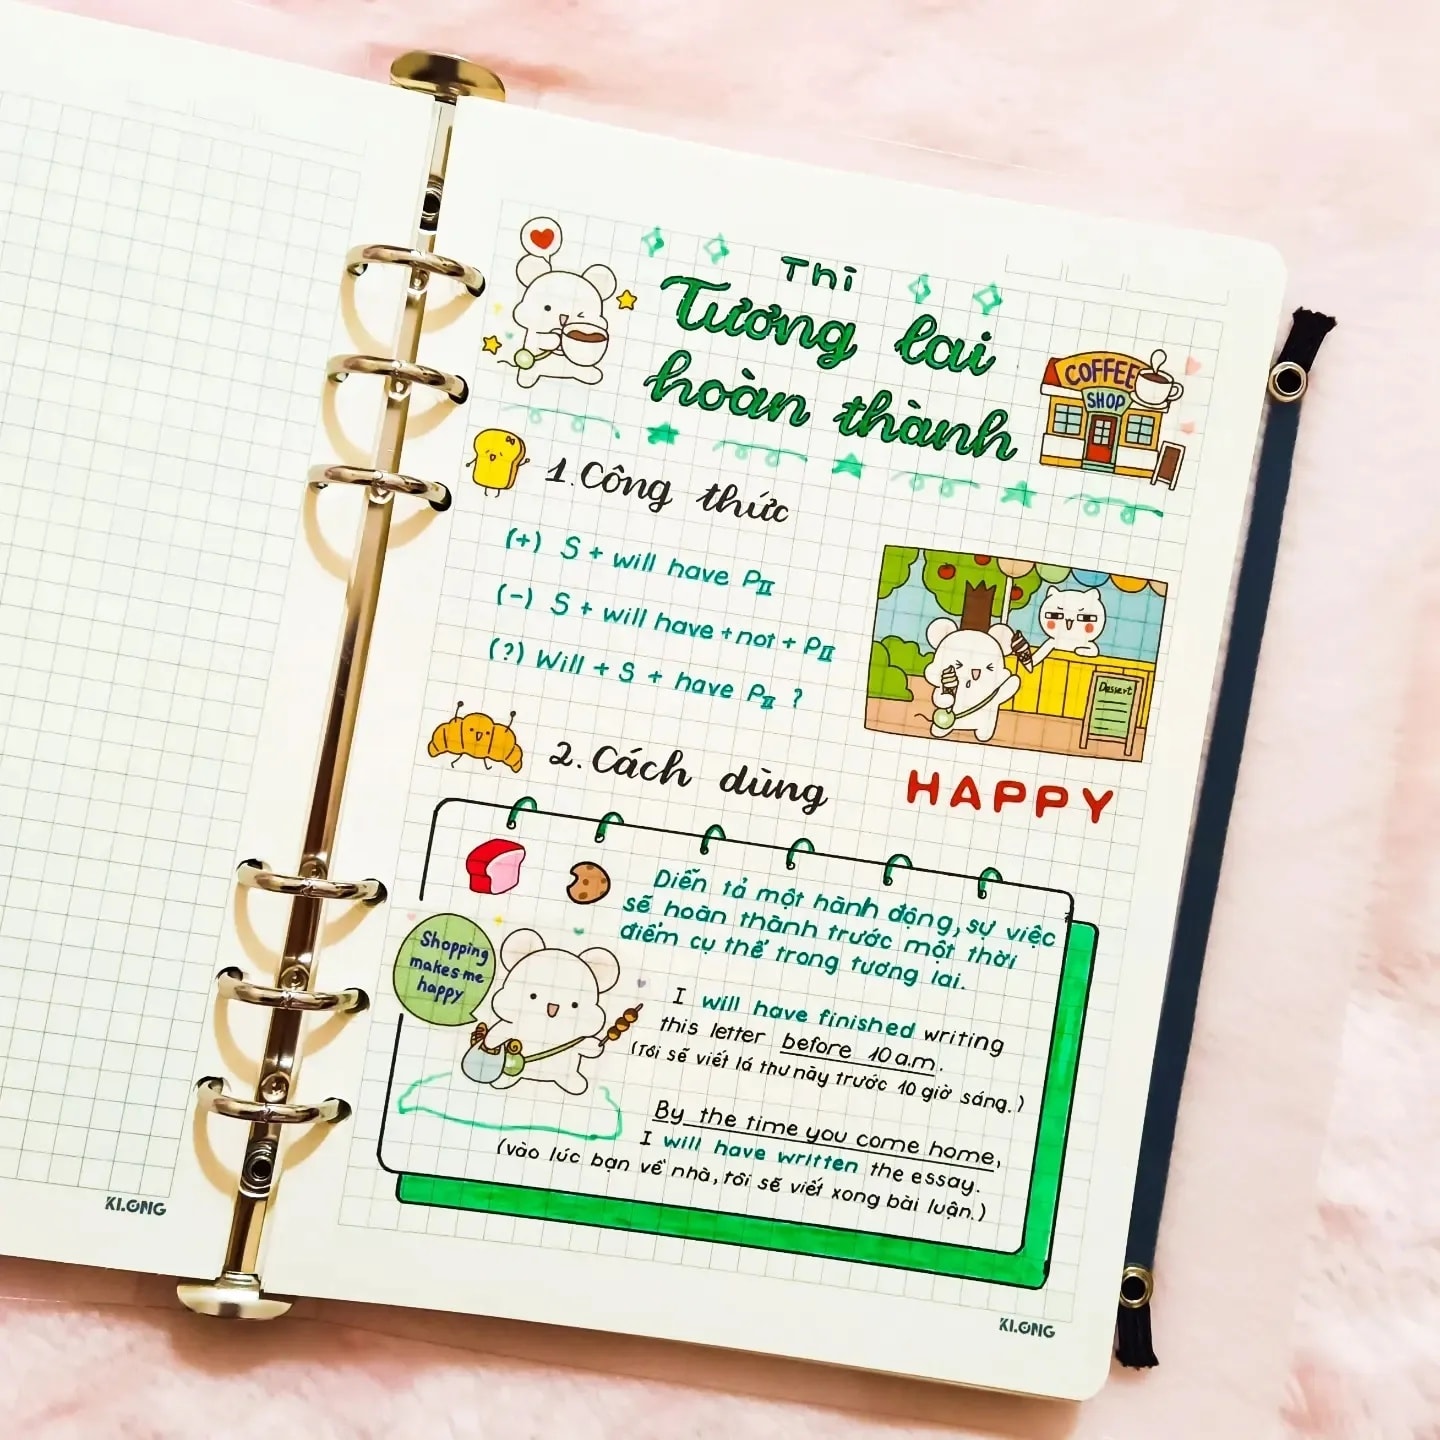 Thì
Tương lai
hoàn thành
COFFEE
SHOP
1. Công thức
(+) S + will have PII
(-) S + will have + not + PII
(?) Will + S + have PII ?
Dessert
HAPPY
2. Cách dùng
Diễn tả một hành động, sự việc
sẽ hoàn thành trước một thời
điểm cụ thể trong tương lai.
Shopping
makes me
happy
I will have finished writing
this letter before 10 a.m.
(Tôi sẽ viết lá thư này trước 10 giờ sáng.)
By the time you come home,
I will have written the essay.
(vào lúc bạn về nhà, tôi sẽ viết xong bài luận.)
KLONG
KLONG